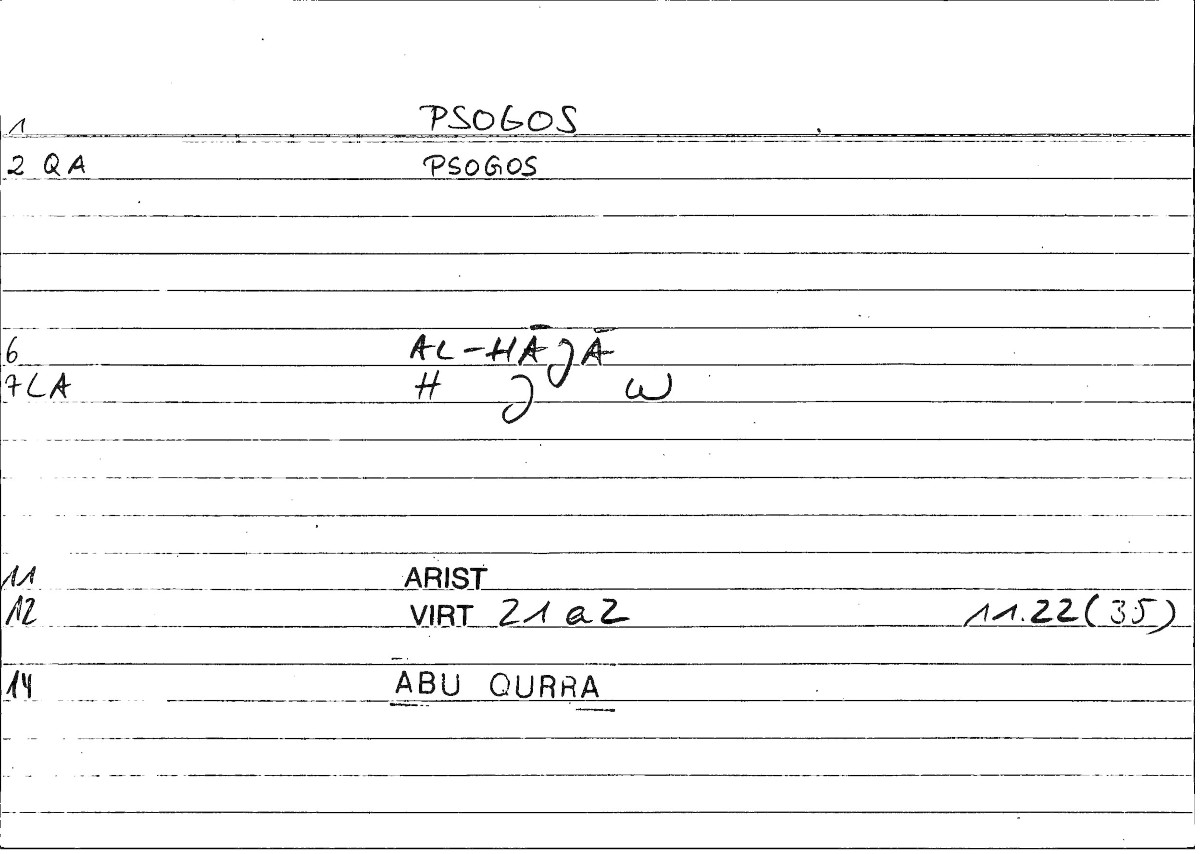 1 PSOGOS
2 QA PSOGOS
6 AL-HĀJĀ
7 LA H J W
11 ARIST
12 VIRT 21 a 2 11.22(35)
14 ĀBU QURRA